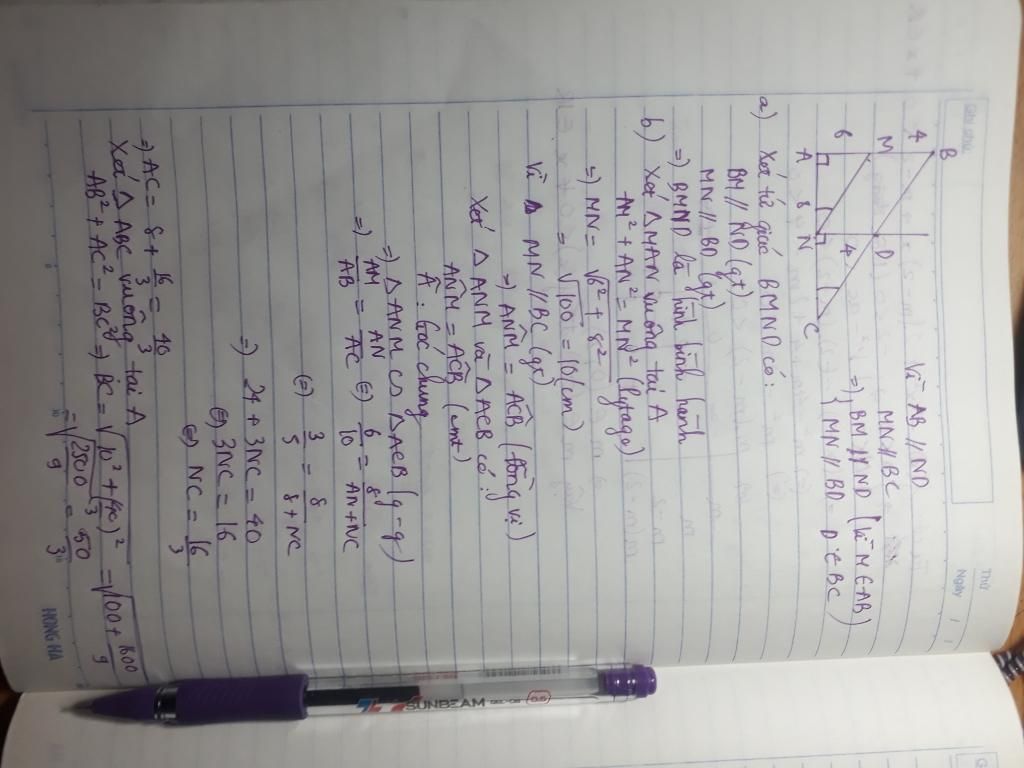 Thứ
Ngày / /
Ghi chú
Vì AB // ND
MN // BC
=) { BM // ND (Vì M ∈ AB)
MN // BD D ∈ BC)
B
4
M
D
6
4
A 8 N
C
a) Xét tứ giác BMND có:
BM // ND (gt)
MN // BD (gt)
=) BMND là hình bình hành
b) Xét △MAN vuông tại A
AM² + AN² = MN² (Pytago)
=) MN = √6² + 8²
= √100 = 10 (cm)
Vì MN // BC (gt)
=) AN̂M = AĈB (đồng vị)
Xét △ ANM và △ ACB có:
AN̂M = AĈB (cmt)
Â : Góc chung
=) △ ANM ∽ △ ACB (g-g)
=) AM/AB = AN/AC (=) 6/10 = 8/AN+NC
(=) 3/5 = 8/8+NC
=) 24 + 3NC = 40
(=) 3NC = 16
(=) NC = 16/3
=) AC = 8 + 16/3 = 40/3
Xét △ ABC vuông tại A
AB² + AC² = BC² =) BC = √10² + (40/3)² = √100 + 1600/9
= √2500/9 = 50/3
HONG HA
SUNBEAM
0.5